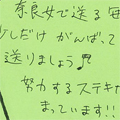 奈良女で送る毎
少しだけ がんばって
送りましょう♪
努力するステキ
まっています!!